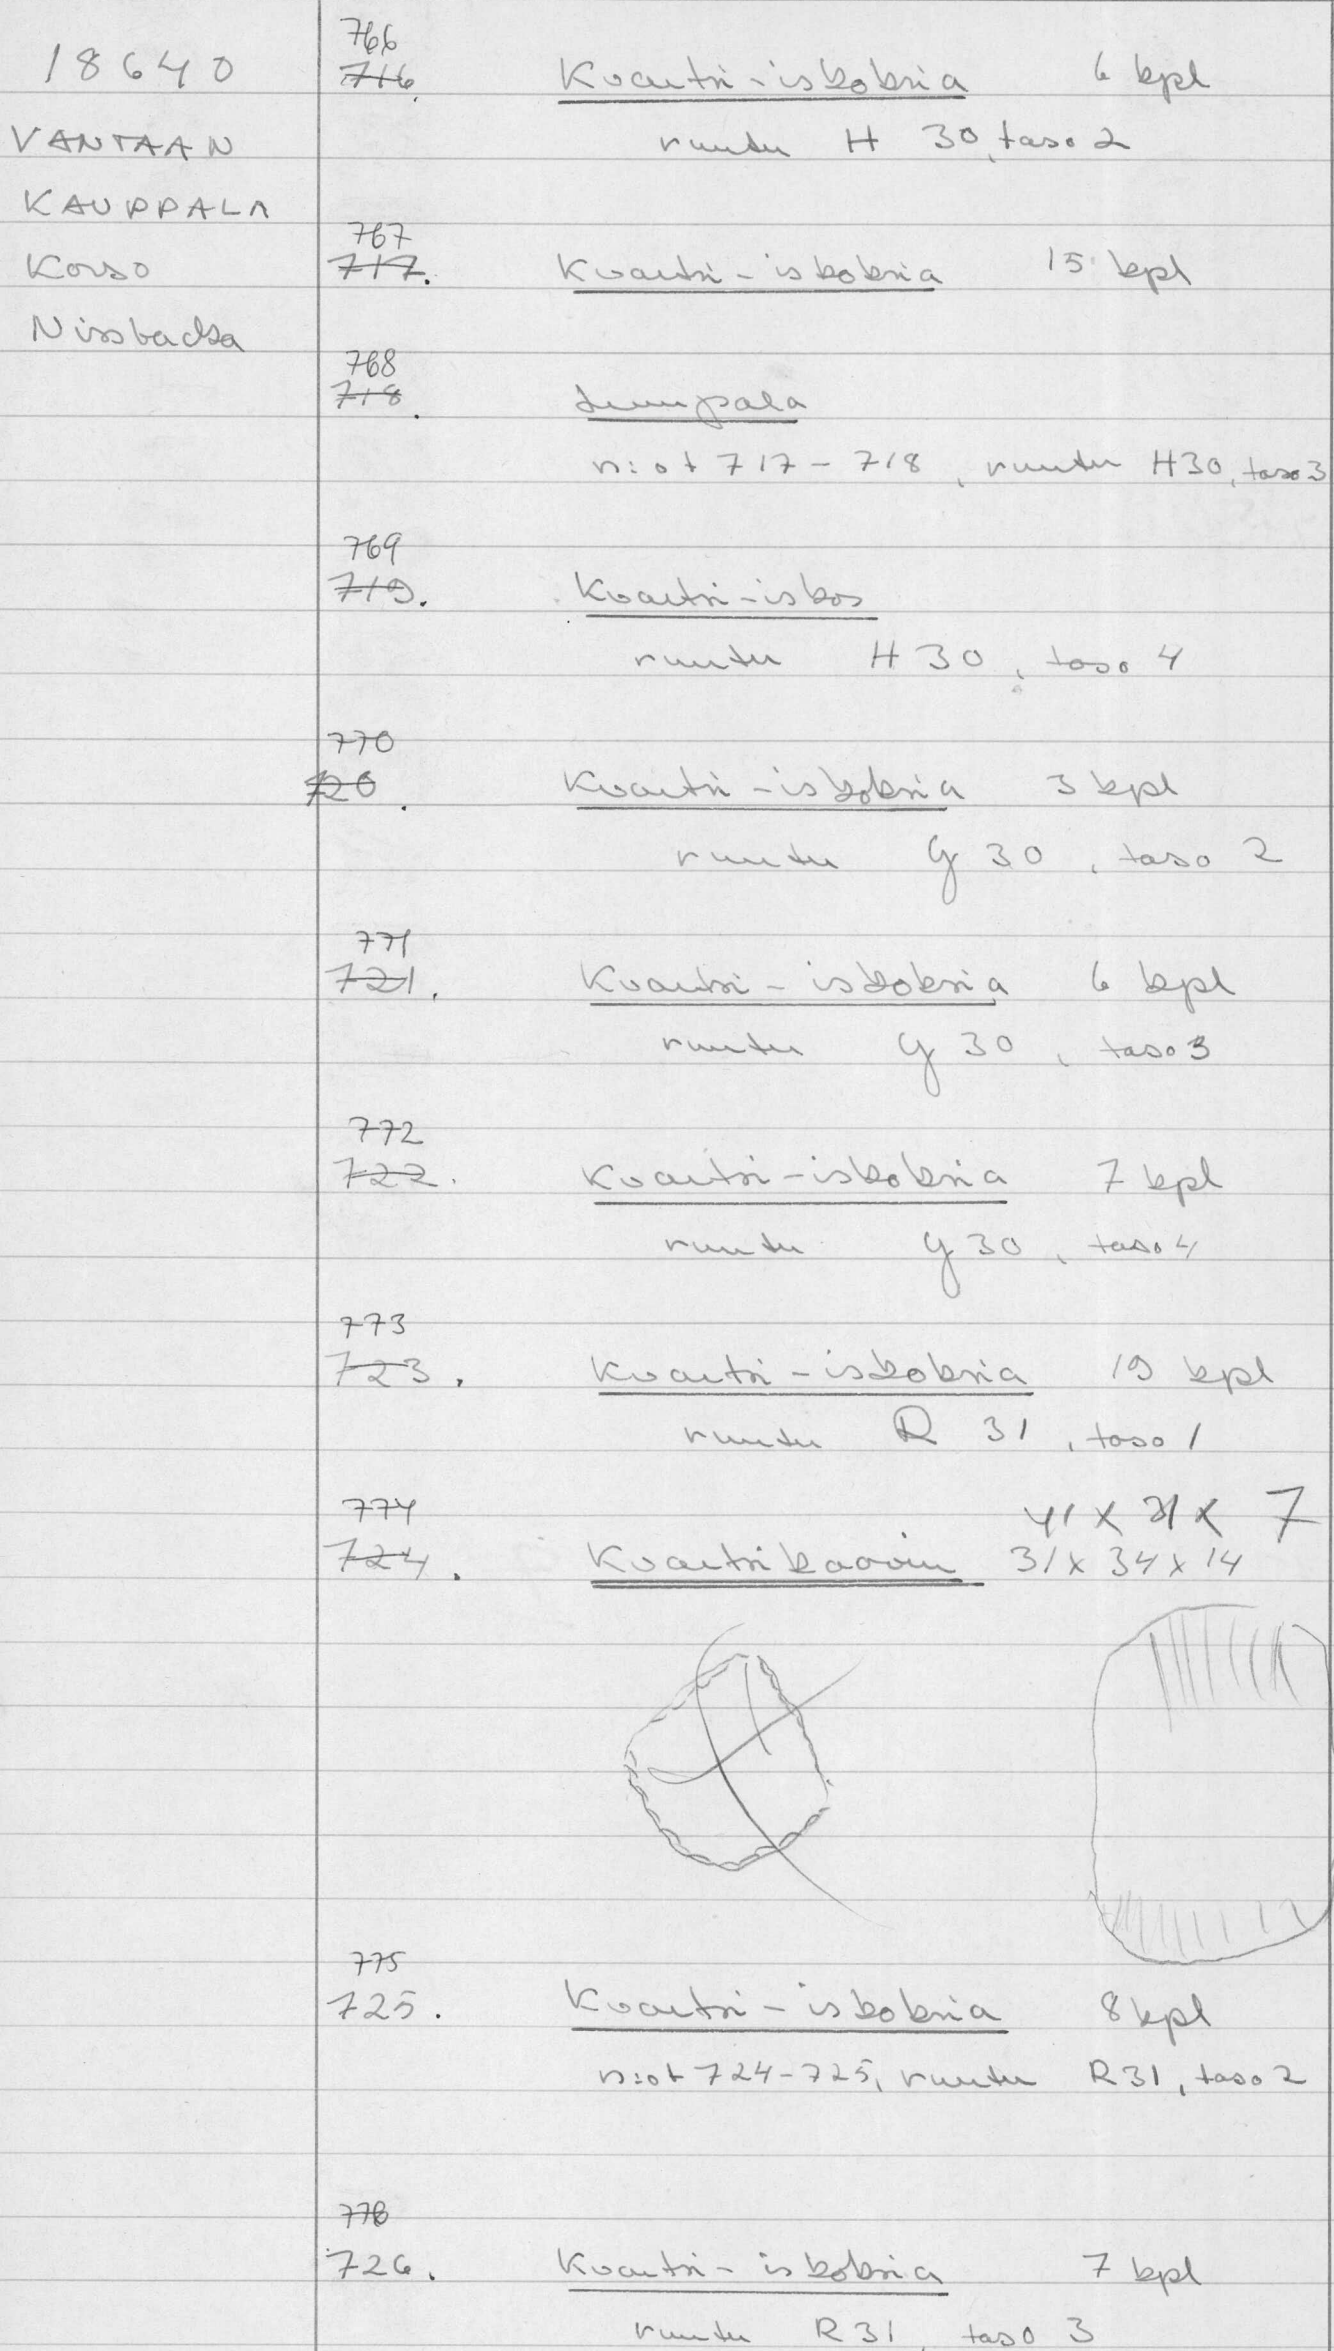 18640
VANTAAN
KAUPPALA
Korso
Nissbacka
766
716. Kvartsi-iskoksia 6 kpl
ruutu H 30, taso 2
767
717. Kvartsi-iskoksia 15 kpl
768
718. Luunpala
n:ot 717-718, ruutu H30, taso 3
769
719. Kvartsi-iskos
ruutu H 30, taso 4
770
720. Kvartsi-iskoksia 3 kpl
ruutu G 30, taso 2
771
721. Kvartsi-iskoksia 6 kpl
ruutu G 30, taso 3
772
722. Kvartsi-iskoksia 7 kpl
ruutu G 30, taso 4
773
723. Kvartsi-iskoksia 19 kpl
ruutu R 31, taso 1
774 41 x 21 x 7
724. Kvartsikaavin 31 x 34 x 14
775
725. Kvartsi-iskoksia 8 kpl
n:ot 724-725, ruutu R31, taso 2
776
726. Kvartsi-iskoksia 7 kpl
ruutu R31, taso 3